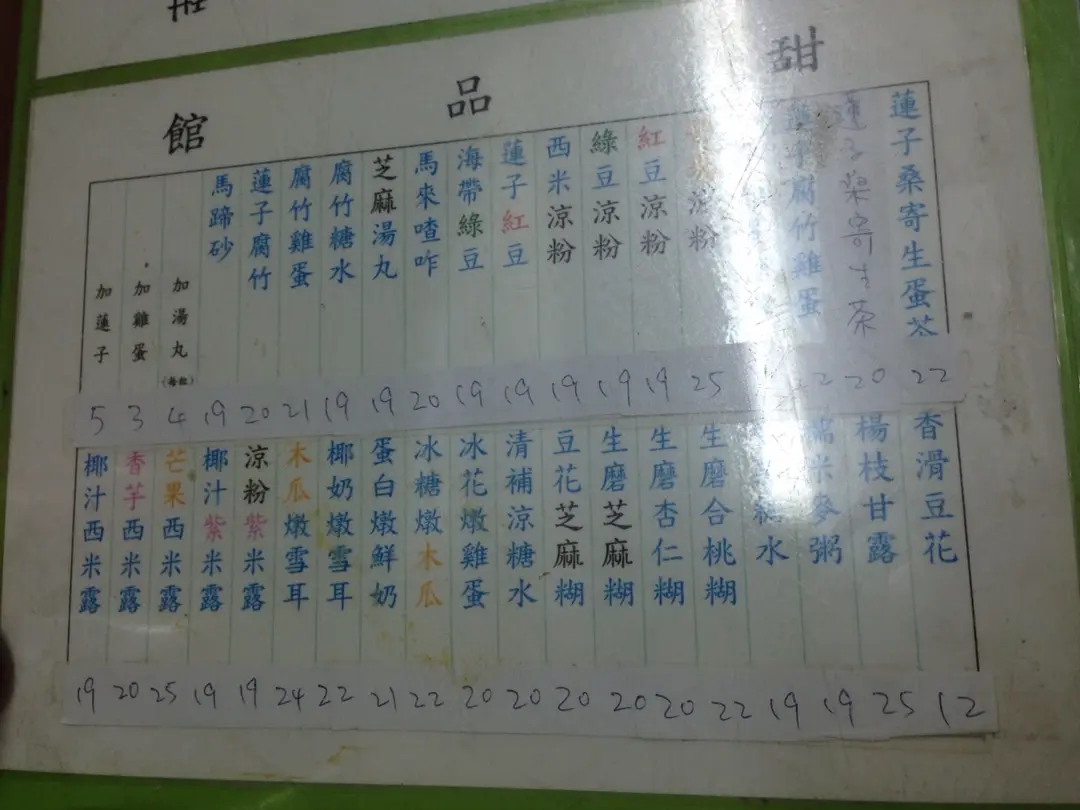 甜品館
蓮子桑寄生蛋茶
蓮子桑寄生茶
蓮子腐竹雞蛋
涼粉
紅豆涼粉
綠豆涼粉
西米涼粉
蓮子紅豆
海帶綠豆
馬來喳咋
芝麻湯丸
腐竹糖水
腐竹雞蛋
蓮子腐竹
馬蹄砂
加湯丸(每粒)
加雞蛋
加蓮子
22
20
25
19
19
19
19
19
20
19
19
21
20
19
4
3
5
香滑豆花
楊枝甘露
糯米麥粥
糖水
生磨合桃糊
生磨杏仁糊
生磨芝麻糊
豆花芝麻糊
清補涼糖水
冰花燉雞蛋
冰糖燉木瓜
蛋白燉鮮奶
椰奶燉雪耳
木瓜燉雪耳
涼粉紫米露
椰汁紫米露
芒果西米露
香芋西米露
椰汁西米露
12
25
19
19
22
20
20
20
20
20
22
21
22
24
19
19
25
20
19